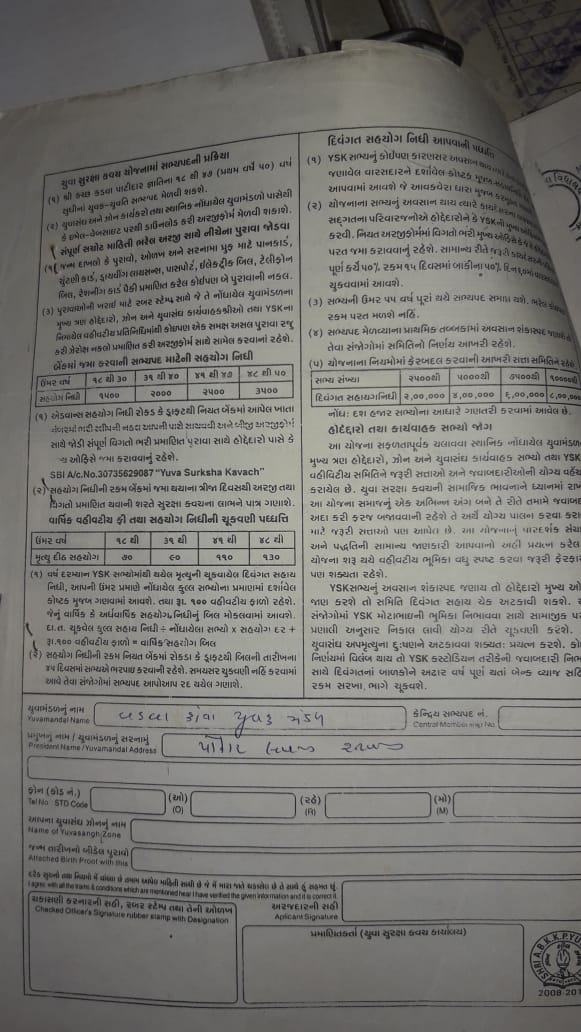 યુવા સુરક્ષા કવચ યોજનામાં સભ્યપદની પ્રક્રિયા
(૧) શ્રી કચ્છ કડવા પાટીદાર જ્ઞાતિના ૧૮ થી ૪૭ (પ્રથમ વર્ષે ૫૦) વર્ષ
સુધીનાં યુવક-યુવતિ સભ્યપદ મેળવી શકશે.
(૨) યુવાસંઘ અને ઝોન કાર્યકરો તથા સ્થાનિક નોંધાયેલ યુવામંડળો પાસેથી
કે ઇમેલ-વેબસાઇટ પરથી ડાઉનલોડ કરી અરજીફોર્મ મેળવી શકશે.
સંપૂર્ણ સચોટ માહિતી ભરેલ અરજી સાથે નીચેના પુરાવા જોડવા
(૧) જન્મ દાખલો કે પુરાવો, ઓળખ અને સરનામા પ્રુફ માટે પાનકાર્ડ,
ચુંટણી કાર્ડ, ડ્રાયવીંગ લાયસન્સ, પાસપોર્ટ, ઇલેક્ટ્રીક બિલ, ટેલીફોન
બિલ, રેશનીંગ કાર્ડ પૈકી પ્રમાણિત કરેલ કોઇપણ બે પુરાવાની નકલ.
(૩) પુરાવાઓની ખરાઇ માટે રબર સ્ટેમ્પ સાથે જે તે નોંધાયેલ યુવામંડળના
મુખ્ય ત્રણ હોદ્દેદારો, ઝોન અને યુવાસંઘ કાર્યવાહકશ્રીઓ તથા YSKના
નિમાયેલ વહીવટીય પ્રતિનિધિમાંથી કોઇપણ એક સમક્ષ અસલ પુરાવા રજૂ
કરી ઝેરોક્ષ નકલો પ્રમાણિત કરી અરજીફોર્મ સાથે સામેલ કરવાનાં રહેશે.
બેંકમાં જમા કરાવવાની સભ્યપદ માટેની સહયોગ નિધી
ઉંમર વર્ષ ૧૮ થી ૩૦ ૩૧ થી ૪૦ ૪૧ થી ૪૭ ૪૮ થી ૫૦
સહયોગ નિધી ૧૫૦૦ ૨૦૦૦ ૨૫૦૦ ૩૫૦૦
(૧) એડવાન્સ સહયોગ નિધી રોકડ કે ડ્રાફટથી નિયત બેંકમાં આપેલ ખાતા
નંબરમાં ભરી સ્લીપની નકલ આપની પાસે સાચવવી અને બીજી અરજીફોર્મ
સાથે જોડી સંપૂર્ણ વિગતો ભરી પ્રમાણિત પુરાવા સાથે હોદ્દેદારો પાસે કે
ઓફિસે જમા કરાવવાનું રહેશે.
SBI A/c.No.30735629087 "Yuva Surksha Kavach"
(૨) સહયોગ નિધીની રકમ બેંકમાં જમા થયાના ત્રીજા દિવસથી અરજી તથા
વિગતો પ્રમાણિત થવાની શરતે સુરક્ષા કવચના લાભને પાત્ર ગણાશે.
વાર્ષિક વહીવટીય ફી તથા સહયોગ નિધીની ચૂકવણી પધ્ધતિ
ઉંમર વર્ષ ૧૮ થી ૩૧ થી ૪૧ થી ૪૮ થી
મૃત્યુ દીઠ સહયોગ ૭૦ ૯૦ ૧૧૦ ૧૩૦
(૧) વર્ષ દરમ્યાન YSK સભ્યોમાંથી થયેલ મૃત્યુની ચૂકવાયેલ દિવંગત સહાય
નિધી, આપની ઉંમર પ્રમાણે નોંધાયેલ કુલ્લ સભ્યોના પ્રમાણમાં દર્શાવેલ
કોષ્ટક મુજબ ગણવામાં આવશે. તથા રૂા. ૧૦૦ વહીવટીય ફાળો રહેશે.
જેનું વાર્ષિક કે અર્ધવાર્ષિક સહયોગ નિધીનું બિલ મોકલવામાં આવશે.
દા.ત. ચૂકવેલ કુલ્લ સહાય નિધી ÷ નોંધાયેલા સભ્યો x સહયોગ દર +
રૂા.૧૦૦ વહીવટીય ફાળો = વાર્ષિક સહયોગ બિલ
(૨) સહયોગ નિધીની રકમ નિયત બેંકમાં રોકડા કે ડ્રાફટથી બિલની તારીખના
૪૫ દિવસમાં સભ્યએ ભરપાઇ કરવાની રહેશે. સમયસર ચૂકવણી નહિ કરવામાં
આવે તેવા સંજોગોમાં સભ્યપદ આપોઆપ રદ થયેલ ગણાશે.
દિવંગત સહયોગ નિધી આપવાની પધ્ધતિ
(૧) YSK સભ્યનું કોઇપણ કારણસર અવસાન થાય
જણાવેલ વારસદારને દર્શાવેલ કોષ્ટક મુજબ
આપવામાં આવશે જે આવકવેરા ધારા મુજબ
(૨) યોજનાના સભ્યનું અવસાન થાય ત્યારે
સદ્ગતના પરિવારજનોએ હોદ્દેદારોને કે YSKની મુખ્ય
કરવી. નિયત અરજીફોર્મમાં વિગતો ભરી મુખ્ય ઓફિસે કે
પરત જમા કરાવવાનું રહેશે. સામાન્ય રીતે જરૂરી
પૂર્ણ કર્યે ૫૦%, રકમ ૧૫ દિવસમાં બાકીના ૫૦%
ચુકવવામાં આવશે.
(૩) સભ્યની ઉંમર ૫૫ વર્ષ પૂરાં થયે સભ્યપદ સમાપ્ત થશે. ભરેલ
રકમ પરત મળશે નહિં.
(૪) સભ્યપદ મેળવ્યાના પ્રાથમિક તબક્કામાં અવસાન શંકાસ્પદ
તેવા સંજોગોમાં સમિતિનો નિર્ણય આખરી રહેશે.
(૫) યોજનાના નિયમોમાં ફેરબદલ કરવાની આખરી સત્તા સમિતિને રહેશે.
સભ્ય સંખ્યા ૨૫૦૦થી ૫૦૦૦થી ૭૫૦૦થી ૧૦૦૦૦
દિવંગત સહાયગનિધી ૨,૦૦,૦૦૦ ૪,૦૦,૦૦૦ ૬,૦૦,૦૦૦ ૮,૦૦,
નોંધ: દશ હજાર સભ્યોના આધારે ગણતરી કરવામાં આવેલ છે.
હોદ્દેદારો તથા કાર્યવાહક સભ્યો જોગ
આ યોજના સફળતાપૂર્વક ચલાવવા સ્થાનિક નોંધાયેલ યુવામંડળ
મુખ્ય ત્રણ હોદ્દેદારો, ઝોન અને યુવાસંઘ કાર્યવાહક સભ્યો તથા YSK
વહીવિટીય સમિતિને જરૂરી સત્તાઓ અને જવાબદારીઓની યોગ્ય
કરાયેલ છે. યુવા સુરક્ષા કવચની સામાજિક ભાવનાને ધ્યાનમાં
આ યોજના સમાજનું એક અભિન્ન અંગ બને તે રીતે તમામે જવાબ
અદા કરી ફરજ બજાવવાની રહેશે તે અર્થે યોગ્ય પાલન કરવા
માટે જરૂરી સત્તાઓ પણ આપેલ છે. આ યોજનાનું પારદર્શક
અને પદ્ધતિની સામાન્ય જાણકારી આપવાનો અહીં પ્રયત્ન કરેલ
યોજના શરૂ થયે વહીવટીય ભૂમિકા વધુ સ્પષ્ટ કરવા જરૂરી ફેરફાર
પણ શક્યતા રહેશે.
YKSસભ્યનું અવસાન શંકાસ્પદ જણાય તો હોદ્દેદારો મુખ્ય
જાણ કરશે તો સમિતિ દિવંગત સહાય ચેક અટકાવી શકશે.
સંજોગોમાં YSK મોટાભાઇની ભૂમિકા નિભાવવા સાથે સામાજીક
પ્રણાલી અનુસાર નિકાલ લાવી યોગ્ય રીતે ચૂકવણી કરશે.
યુવાસંઘ અપમૃત્યુના દુ:ખણાને અટકાવવા શક્યત: પ્રયત્ન કરશે.
નિર્ણયમાં વિલંબ થાય તો YSK કસ્ટોડિયન તરીકેની જવાબદારી
સાથે દિવંગતનાં બાળકોને અઢાર વર્ષ પૂર્ણ થતાં બેન્ક વ્યાજ
રકમ સરખા, ભાગે ચૂકવશે.
યુવામંડળનું નામ
Yuvamandal Name
યુવક મંડળ
કેન્દ્રિય સભ્યપદ નં.
Central Membership No.
પ્રમુખનું નામ / યુવામંડળનું સરનામું
President Name / Yuvamandal Address
ફોન (કોડ નં.)
Tel No STD Code
(ઓ)
(O)
(રહે)
(R)
(મો)
(M)
આપના યુવાસંઘ ઝોનનું નામ
Name of Yuvasangh Zone
જન્મ તારીખનો બીડેલ પુરાવો
Attached Birth Proof with this
I agree with all the trams & conditions which are mentioned hear I have verified the given information and it is correct it
ચકાસણી કરનારની સહી, રબર સ્ટેમ્પ તથા તેની ઓળખ
Checked Officer's Signature rubber stamp with Designation
અરજદારની સહી
Aplicant Signature
પ્રમાણિતકર્તા (યુવા સુરક્ષા કવચ કાર્યાલય)
SHRI A.B.K.K.P.YU
2008-201